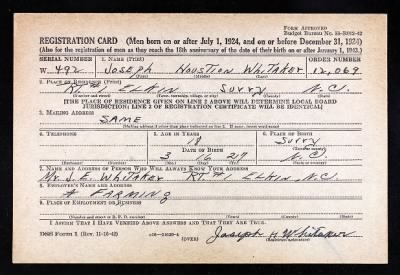 Form Approved
Budget Bureau No. 33-R012-42
REGISTRATION CARD—(Men born on or after July 1, 1924, and on or before December 31, 1924)
(Also for the registration of men as they reach the 18th anniversary of the date of their birth on or after January 1, 1943.)
SERIAL NUMBER 1. Name (Print) ORDER NUMBER
W 492 JOSEPH HOUSTION WHITAKER 12,069
(First) (Middle) (Last)
2. Place of Residence (Print)
RT #1 ELKIN SURRY N.C.
(Number and street) (Town, township, village, or city) (County) (State)
[THE PLACE OF RESIDENCE GIVEN ON LINE 2 ABOVE WILL DETERMINE LOCAL BOARD
JURISDICTION; LINE 2 OF REGISTRATION CERTIFICATE WILL BE IDENTICAL]
3. Mailing Address
SAME
(Mailing address if other than place indicated on line 2. If same, insert word same)
4. Telephone 5. Age in Years 6. Place of Birth
18 SURRY
Date of Birth (Town or county)
3 16 27 N.C.
(Exchange) (Number) (Mo.) (Day) (Yr.) (State or country)
7. Name and Address of Person Who Will Always Know Your Address
Mr. J. E. WHITAKER RT. #1 ELKIN, N.C.
8. Employer's Name and Address
# FARMING
9. Place of Employment or Business
(Number and street or R. F. D. number) (Town) (County) (State)
I Affirm That I Have Verified Above Answers and That They Are True.
DSS Form 1 (Rev. 11-16-42) (OVER) Joseph H Whitaker
(Registrant's signature)